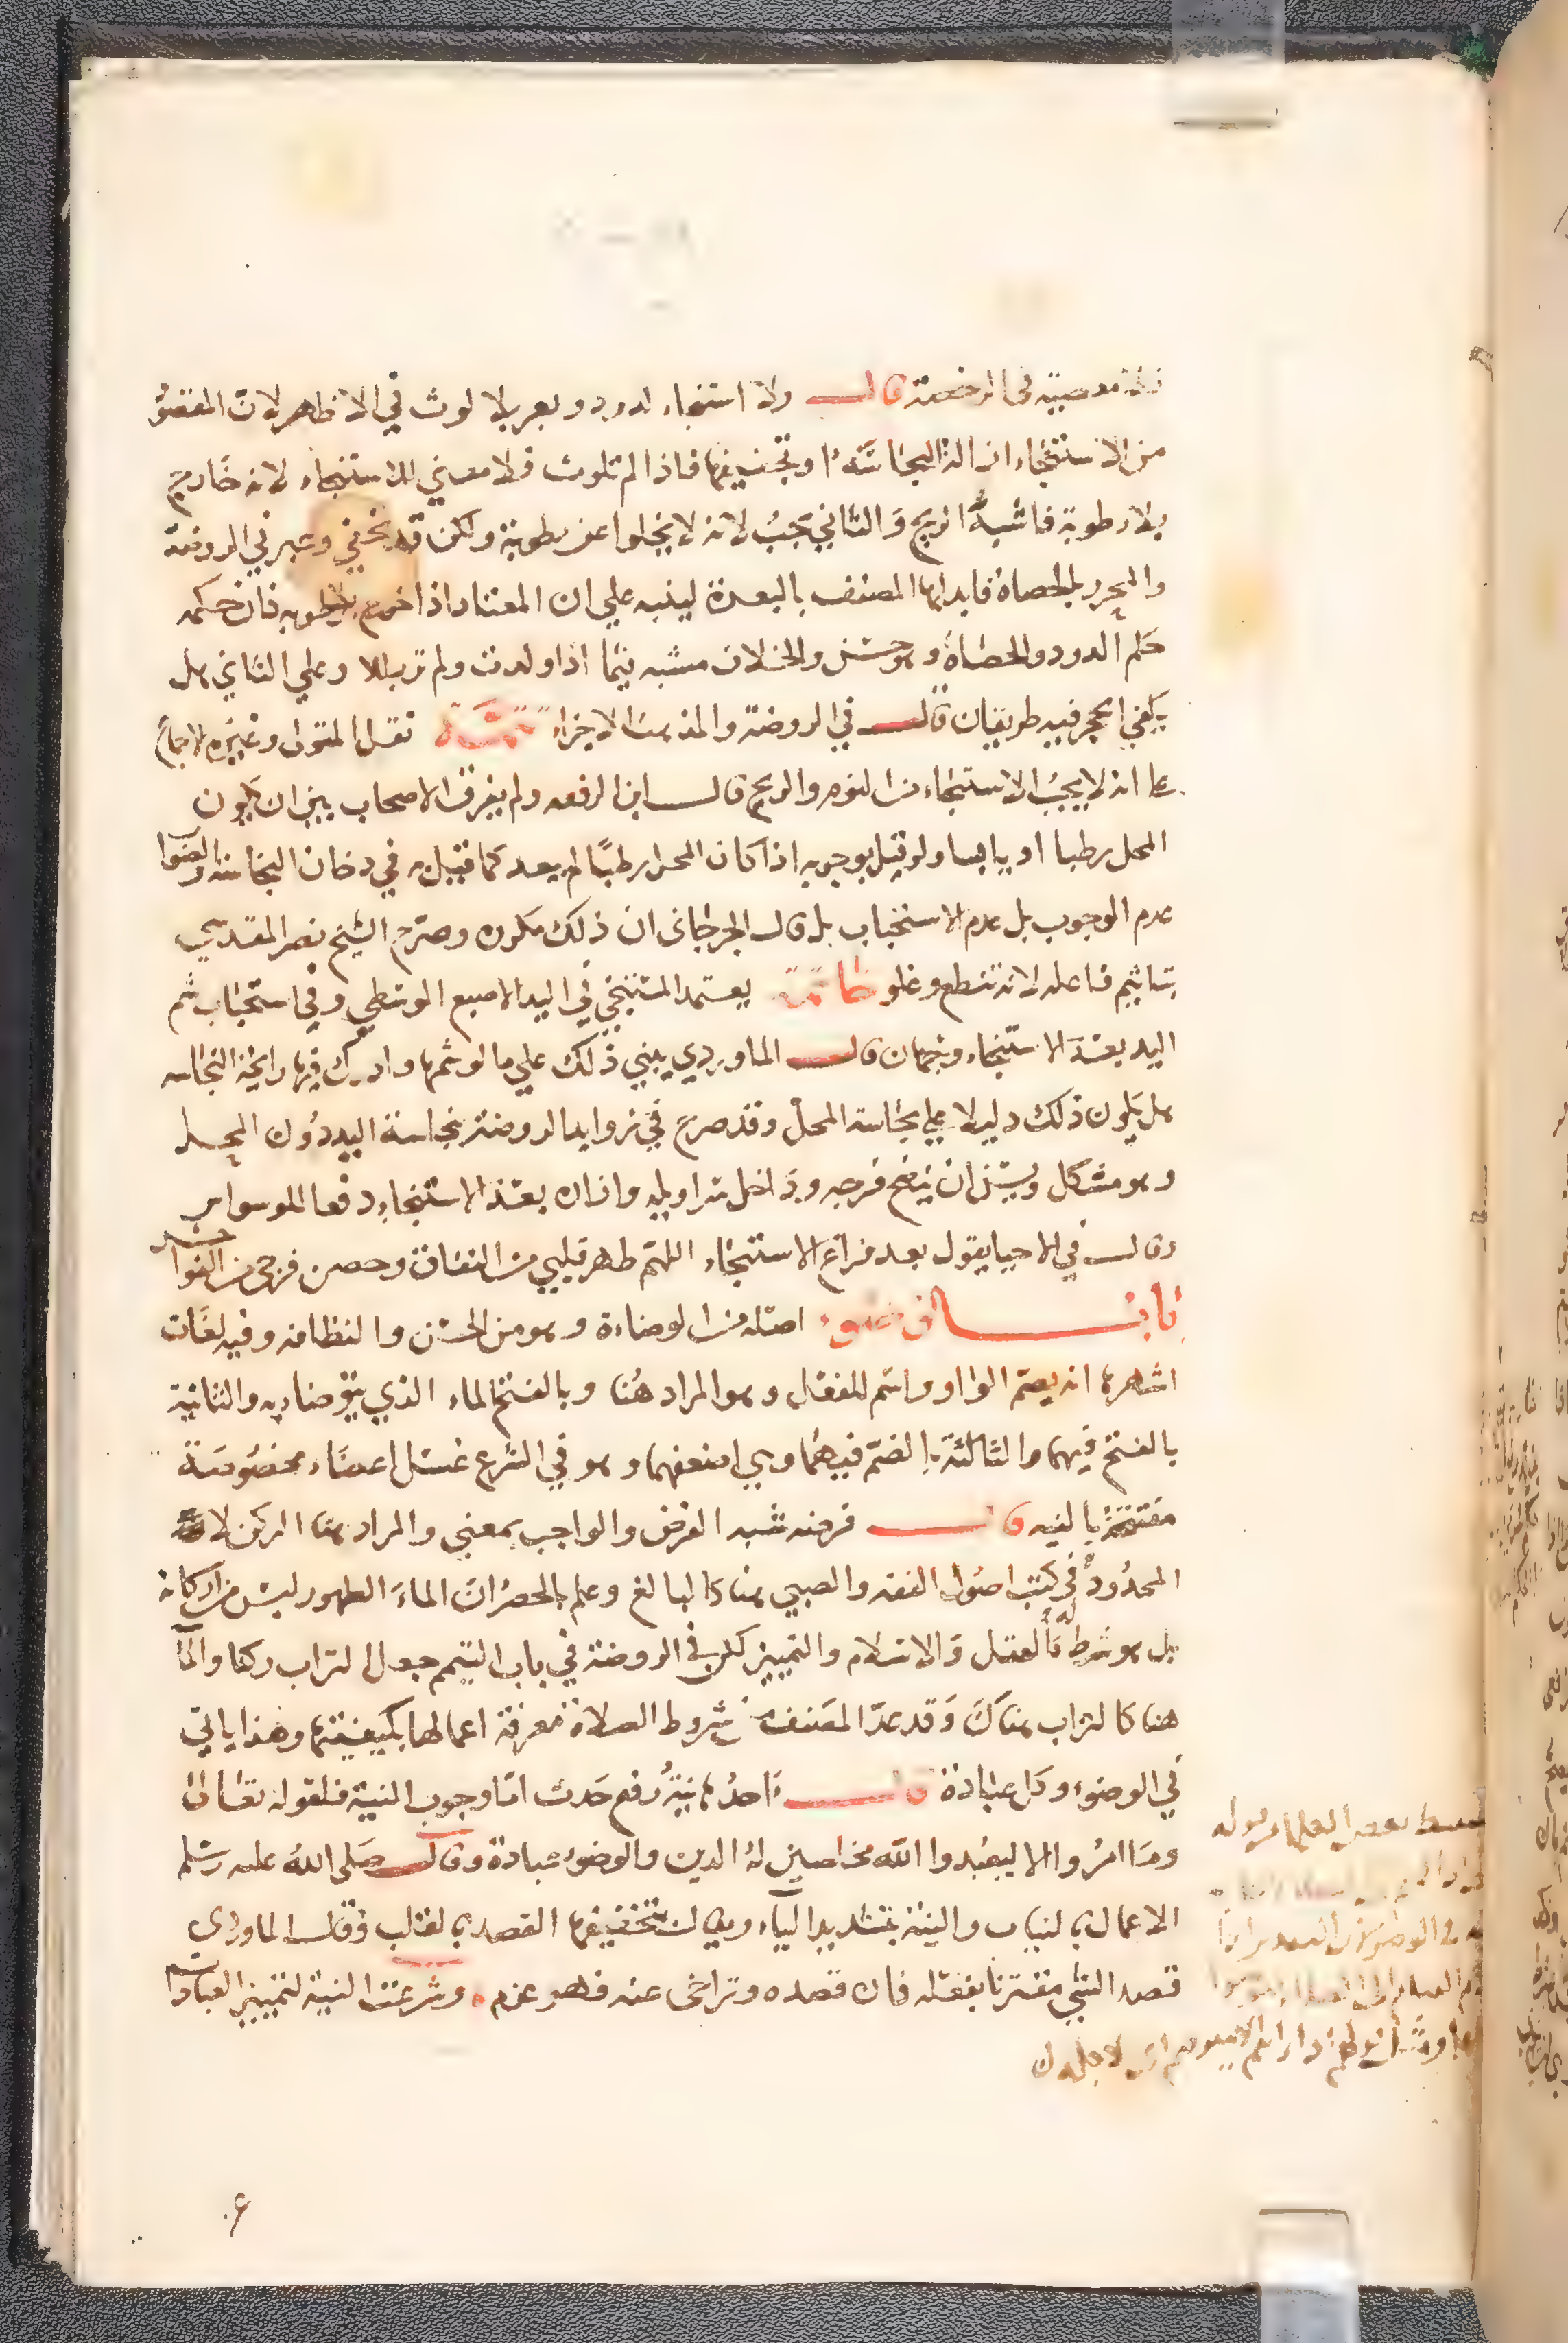 قال ولا استنجاء لدود وبعر بلا لوث في الاظهر لان المقصود
من الاستنجاء ازالة النجاسة او تخفيفها فاذا لم تلوث فلا معني للاستنجاء لانه خارج
بلا رطوبة فاشبه الريح والثاني يجب لانه لا يخلوا عن رطوبة ولكن قد تخفي وعبر في الروضة
والمحرر بالحصاة فابدلها المصنف بالبعرة لينبه علي ان المعتاد اذا خرج بلا رطوبه فان حكمه
حكم الدود والحصاة وهو حسن والخلاف مشبه فيما اذا ولدت ولم تر بللا وعلي الثاني هل
يكفي الحجر فيه طريقان قال في الروضة والمذهب الاجزاء تتمة نقل المتولي وغيره الاجماع
علي انه لا يجب الاستنجاء من النوم والريح قال ابن الرفعه ولم يفرق الاصحاب بين ان يكون
المحل رطبا او يابسا ولو قيل بوجوبه اذا كان المحل رطبا لم يبعد كما قيل به في دخان النجاسة والصواب
عدم الوجوب بل عدم الاستحباب بل قال الجرجاني ان ذلك مكروه وصرح الشيخ نصر المقدسي
بتاثيم فاعله لانه تنطع وغلو خاتمة يعتمد المستنجي في اليد الاصبع الوسطي وفي استحباب شم
اليد بعد الاستنجاء وجهان قال الماوردي يبني ذلك علي ما لو شمها وادرك فيها رايحة النجاسه
هل يكون ذلك دليلا علي نجاسة المحل وقد صرح في زوايد الروضة بنجاسة اليد دون المحل
وهو مشكل ويسن ان ينضح فرجه وداخل سراويله وازاره بعد الاستنجاء دفعا للوسواس
وقال في الاحيا يقول بعد فراغ الاستنجاء اللهم طهر قلبي من النفاق وحصن فرجي من الفواحش
باب الوضوء اصله من الوضاءة وهو من الحسن والنظافة وفيه لغات
اشهرها انه بضم الواو واسم للفعل وهو المراد هنا وبالفتح للماء الذي يتوضا به والثانية
بالفتح فيهما والثالثة بالضم فيهما وهي اضعفها وهو في الشرع غسل اعضاء مخصوصة
مفتتحة بالنيه قال فرضه سته الفرض والواجب بمعني والمراد هنا الركن لا
المحدود في كتب اصول الفقه والصبي هنا كالبالغ وعلم بالحصر ان الماء الطهور ليس من اركانه
بل هو شرط له كالعقل والاسلام والتمييز لكن في الروضة في باب التيمم جعل التراب ركنا والماء
هنا كالتراب هناك وقد عد المصنف في شروط الصلاة معرفة اعمالها بكيفيتها وهذا ياتي
في الوضوء وكل عبادة قال احدها نية رفع حدث اما وجوب النية فلقوله تعالي
وما امروا الا ليعبدوا الله مخلصين له الدين والوضوء عبادة وقال صلى الله عليه وسلم
الاعمال بالنيات والنية بتشديد الياء ويقال بتخفيفها القصد بالقلب وقال الماوردي
قصد الشي مقترنا بفعله فان قصده وتراخى عنه فهو عزم وشرعت النية لتمييز العبادات